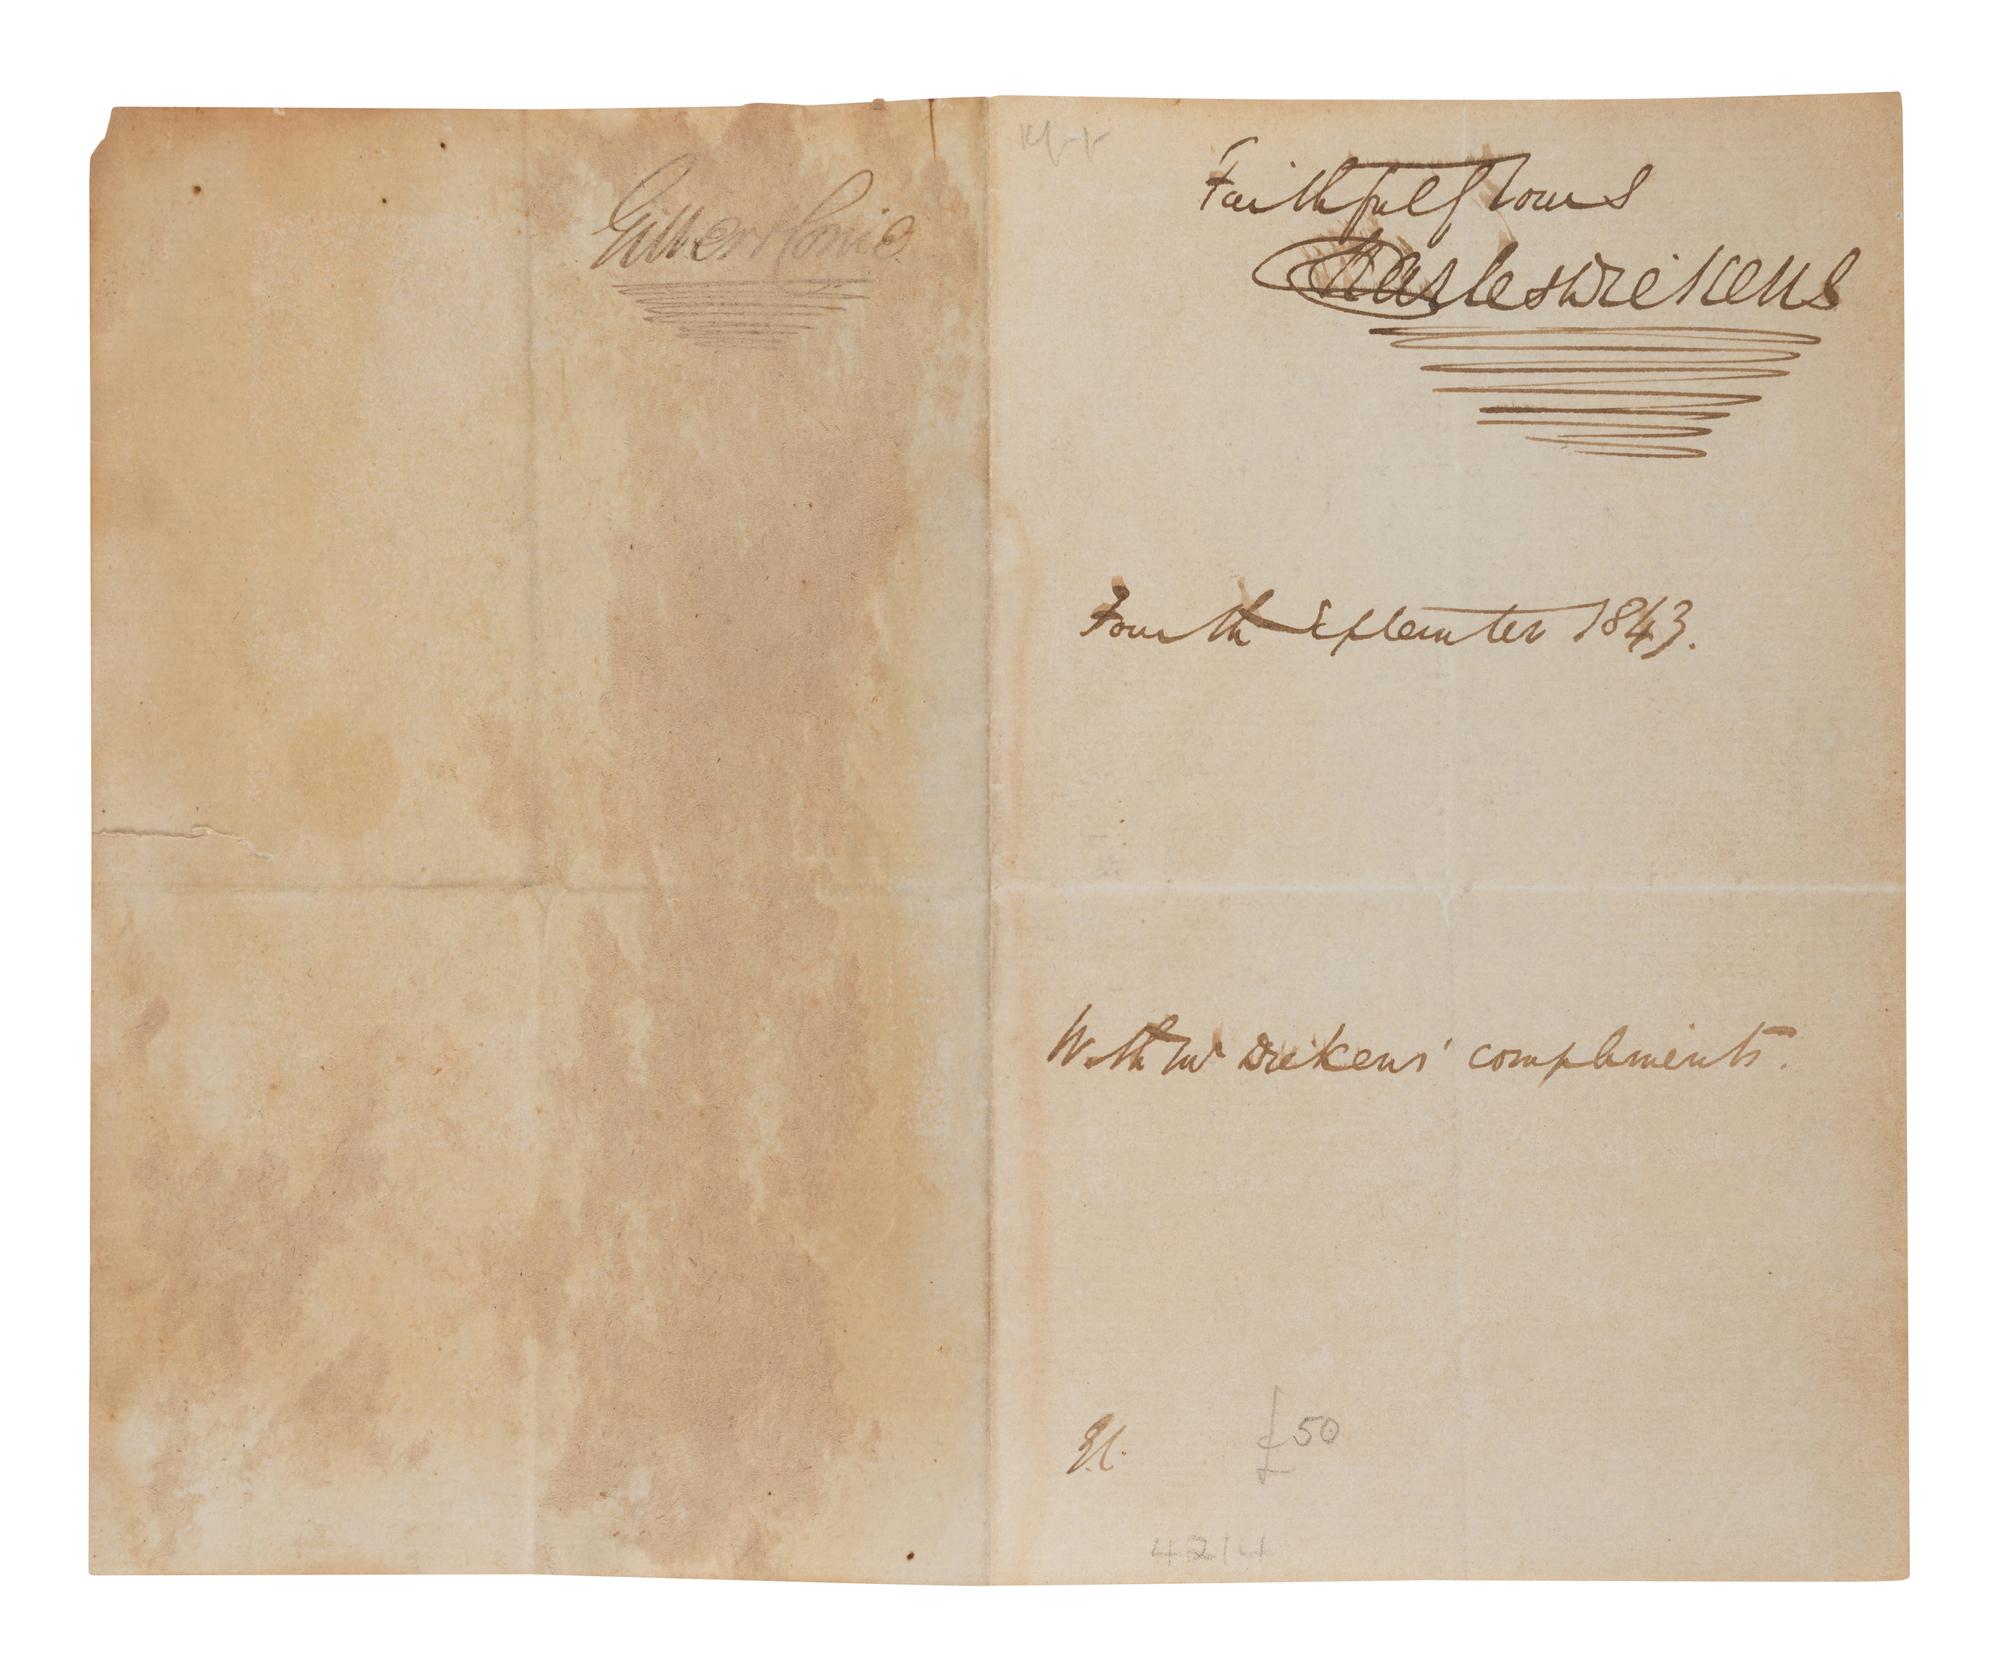 Faithfully Yours
Charles Dickens
Fourth September 1843.
With Mr Dickens' compliments.
£50
4214